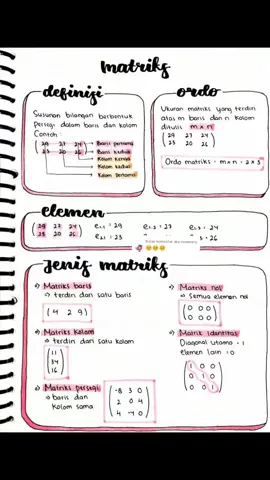 matriks
definisi
Susunan bilangan berbentuk
persegi dalam baris dan kolom
Contoh :
29 27 24 → Baris pertama
23 20 26 → Baris kedua
→ Kolom ketiga
→ Kolom kedua
→ Kolom pertama
ordo
Ukuran matriks yang terdiri
atas m baris dan n kolom
ditulis m x n
29 27 24
23 20 26
Ordo matriks = m x n = 2 x 3
elemen
29 27 24
23 20 26
e1.1 = 29 e1.2 = 27 e1.3 = 24
e2.1 = 23 = 26
Jenis matriks
Matriks baris
→ terdiri dari satu baris
(4 2 9)
Matriks kolom
→ terdiri dari satu kolom
11
34
16
Matriks persegi
→ baris dan
kolom sama
-8 3 0
2 0 4
4 -7 0
Matriks nol
→ Semua elemen nol
0 0 0
0 0 0
Matrik identitas
Diagonal utama = 1
elemen lain = 0
1 0 0
0 1 0
0 0 1